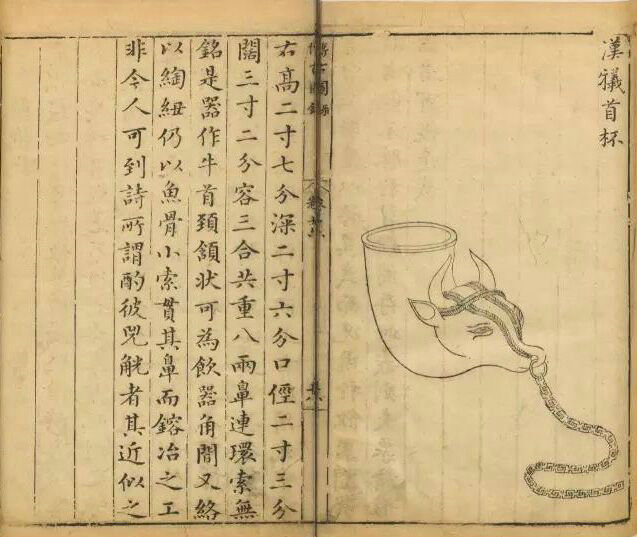 漢犧首杯
博古圖録
右高二寸七分深二寸六分口俓二寸三分
闊三寸二分容三合共重八兩鼻連環索無
銘是器作牛首頚頷狀可為飲器角間又絡
以綯紐仍以魚骨小索貫其鼻而鎔冶之工
非今人可到詩所謂酌彼兕觥者其近似之